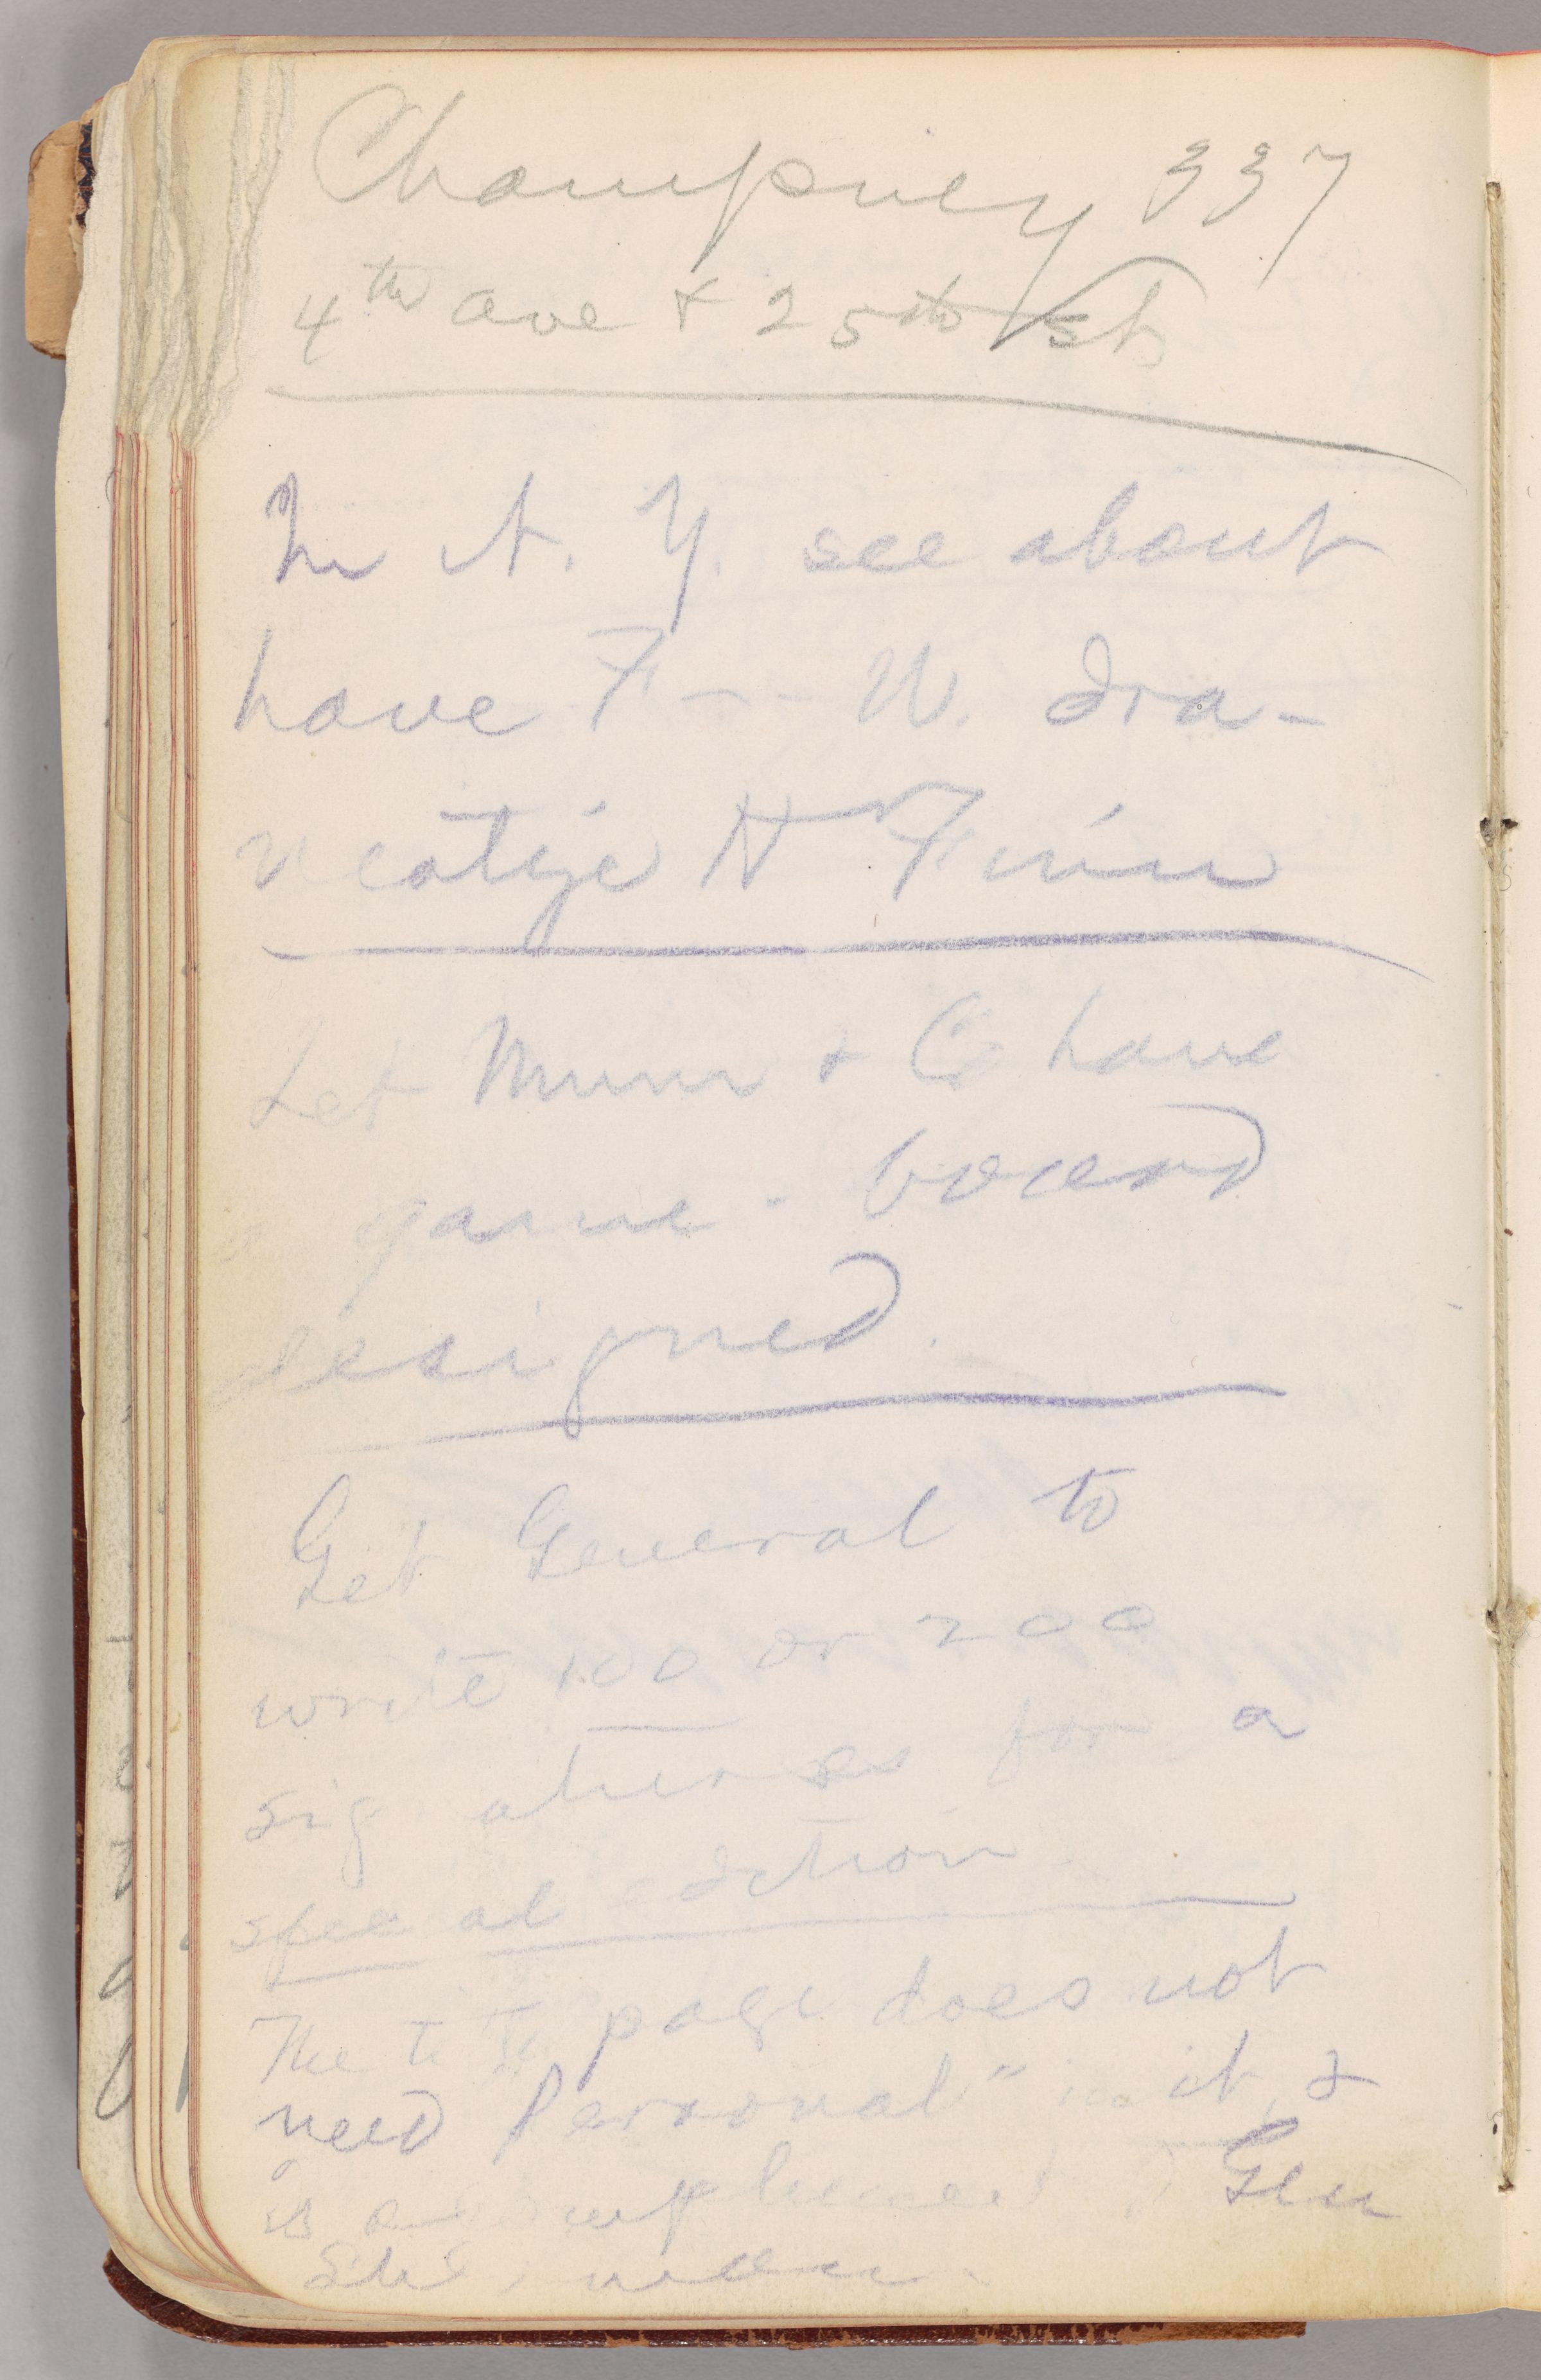 Champney 337
4th ave & 25th St
In N. Y. see about
have F -- W. dra-
matize H Finn
Let Munn & Co have
game-board
designed.
Get General to
write 100 or 200
signatures for a
special edition
The title page does not
need Personal" in it, &
is Gen